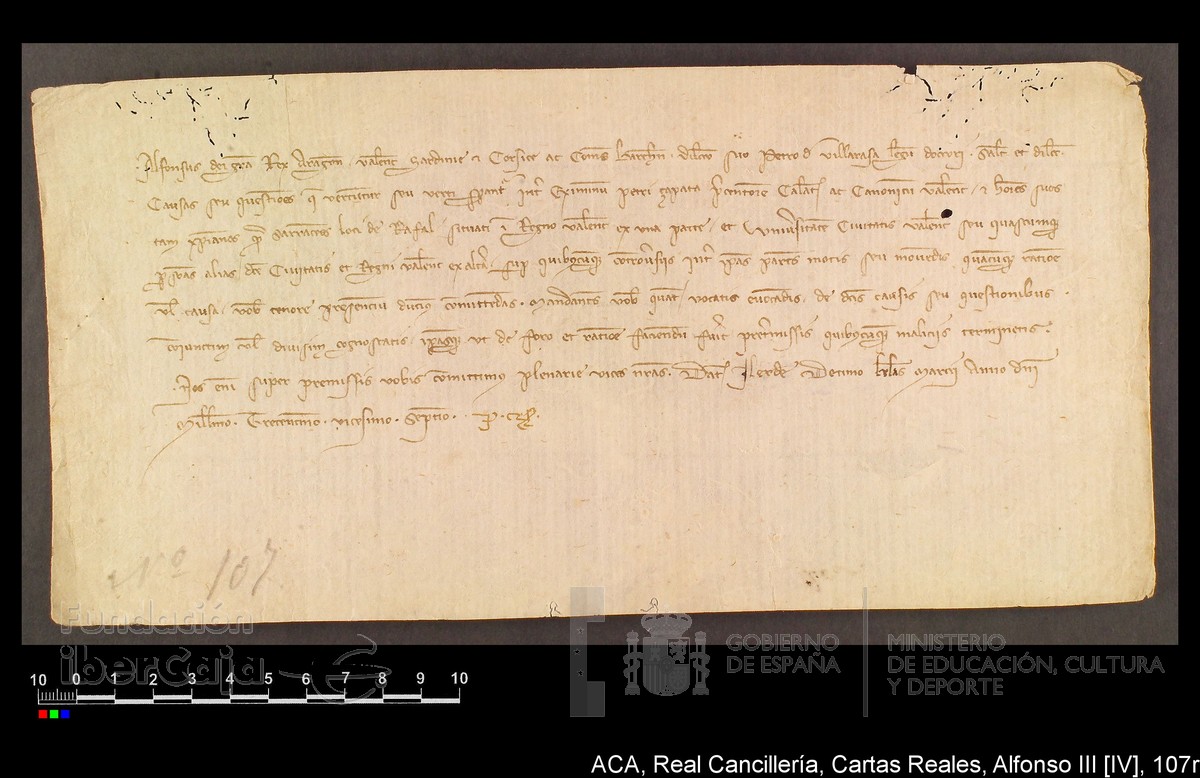 Alfonsus dei gra Rex Aragon Valent Sardinie et Corsice ac Comes Barchn dilco suo Petro d Villarasa legu doctori Salt et dilcc
Causas seu questiones que vertuntur seu verti sperant int Eximinum petri çapata Precentore ac Canonicu Valent et hoies suos
tam xpianos q sarracenos loci de Rafal situati i Regno Valent ex una parte et Universitate Civitatis Valent seu quascumq
psonas alias dce Civitatis et Regni Valent ex altera sup quibuscumq controvsiis int ipas partes motis seu movendis quacumq ratioe
vl causa vob tenore presenciu ducim comittendas Mandantes vob quat vocatis evocandis de dcis causis seu questionibus
coniunctim vl divisim cognoscatis ipasq ut de foro et ratioe faciendu fuit pretmissis quibuscumq maliciis terminetis
Nos eni super premissis vobis comittimus plenarie vices nras Dat Ilerde Decimo klas Marcii Anno dni
Millmo Trecentmo vicesimo Septio
No 107
Fundación
iberCaja
10 0 1 2 3 4 5 6 7 8 9 10
GOBIERNO
DE ESPAÑA
MINISTERIO
DE EDUCACIÓN, CULTURA
Y DEPORTE
ACA, Real Cancillería, Cartas Reales, Alfonso III [IV], 107r